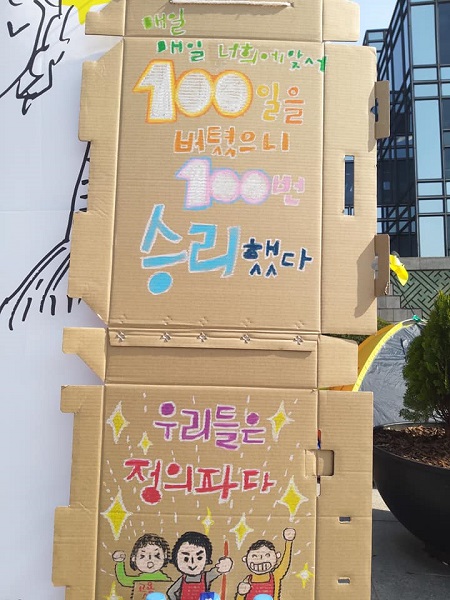 매일
매일 너희에 앞서
100일을
버텼으니
100번
승리했다
우리들은
정의파다